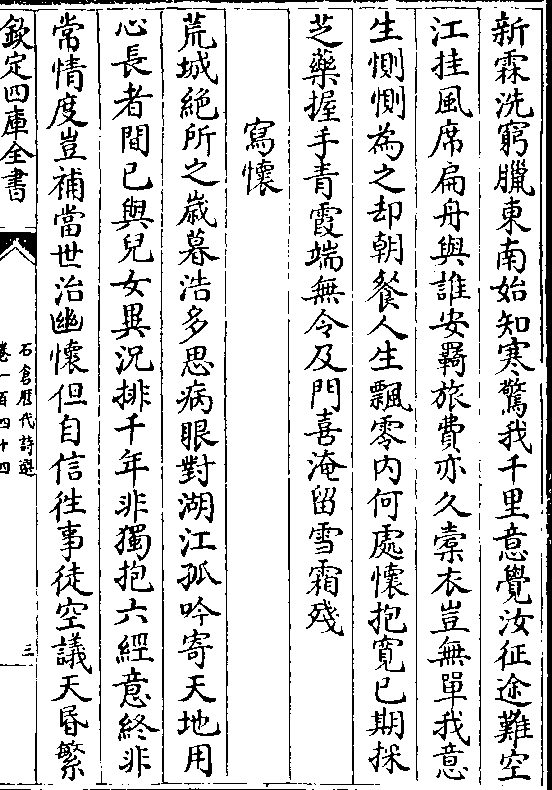 新霖洗窮臘東南始知寒驚我千里意覺汝征途難空
江挂風席扁舟與誰安羇旅費亦久橐衣豈無單我意
生惻惻為之却朝餐人生飄零内何處懷抱寛已期採
芝藥握手青霞端無令及門喜淹留雪霜殘
寫懷
荒城絶所之歳暮浩多思病眼對湖江孤吟寄天地用
心長者間已與兒女異況排千年非獨抱六經意終非
常情度豈補當世治幽懷但自信往事徒空議天昬繁
欽定四庫全書
石倉歷代詩選
卷一百四十四
三